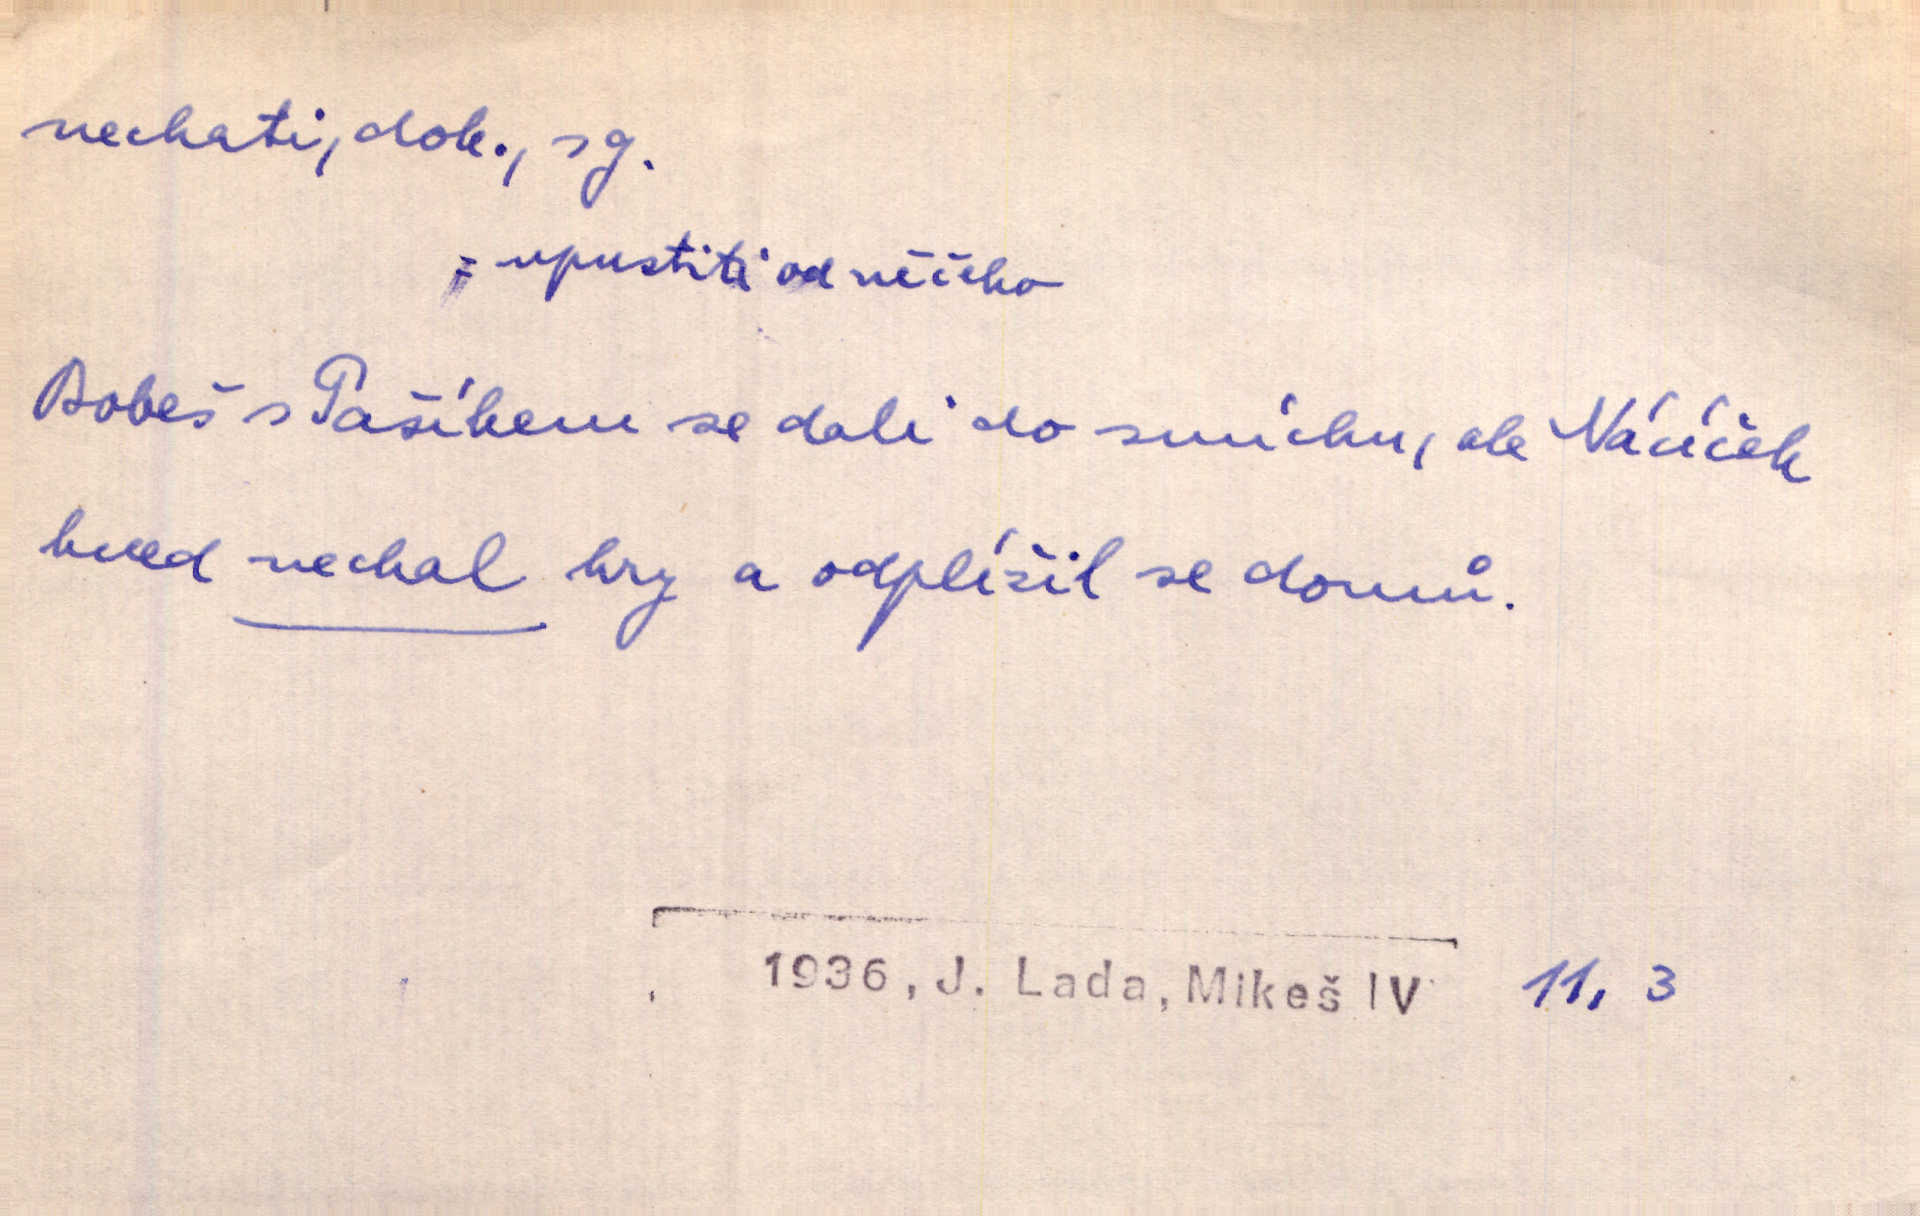 nechati, dok., sg.
= upustiti od něčeho
Bobeš s Pašíkem se dali do smíchu, ale Nácíček
hned nechal hry a odplížil se domů.
1936, J. Lada, Mikeš IV 11, 3